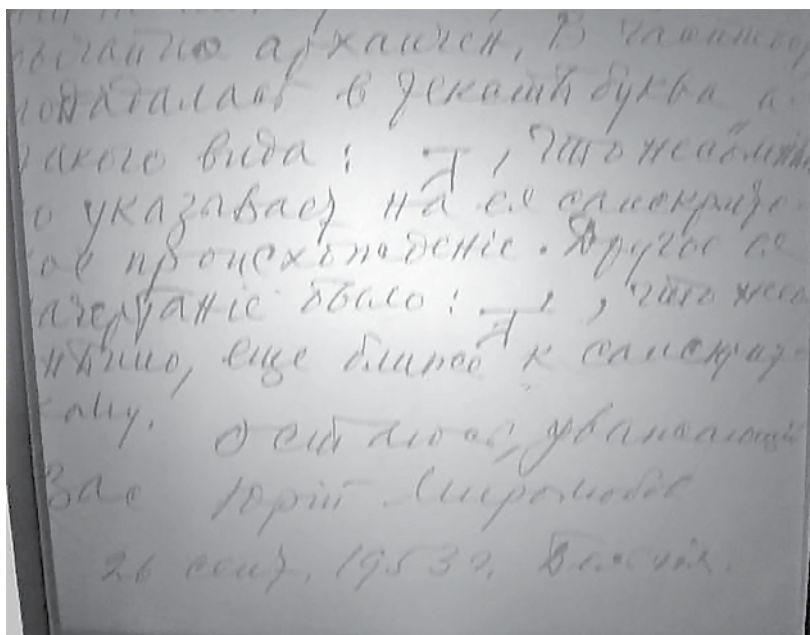 архаичен, В частност
попадалась в декощьки буква а
такого вида: , что несомнѣн
о указывает на ея санскритс
ое происхожденіе. Другое ея
ачертаніе было: , что несо
нѣнно, еще ближе к санскрит
кому.
Остаюсь, уважающій
Вас Юрій Миролюбов
26 сент. 1953 г.